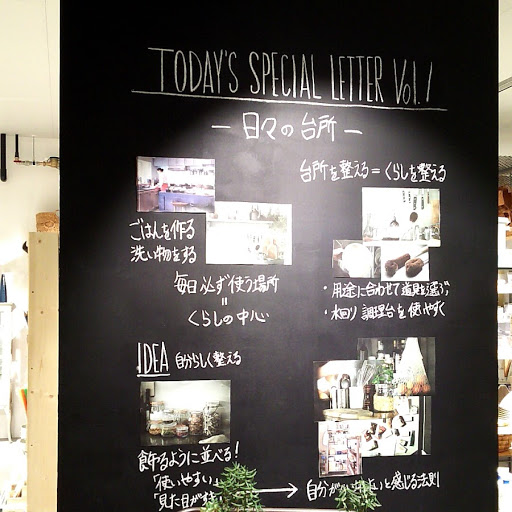 TODAY'S SPECIAL LETTER Vol.1
— 日々の台所 —
台所を整える = くらしを整える
ごはんを作る
洗い物をする
毎日必ず使う場所
=
くらしの中心
・用途に合わせて道具を選ぶ
・水回り 調理台を使いやすく
IDEA 自分らしく整える
飾るように並べる!
「使いやすい」
「見た目がす
→ 自分が いと感じる法則